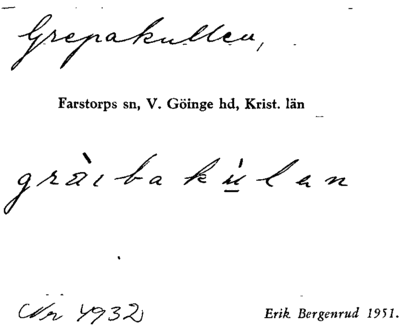 Grepakullen,
Farstorps sn, V. Göinge hd, Krist. län
gràibakùlan
Nr 4932
Erik Bergenrud 1951.